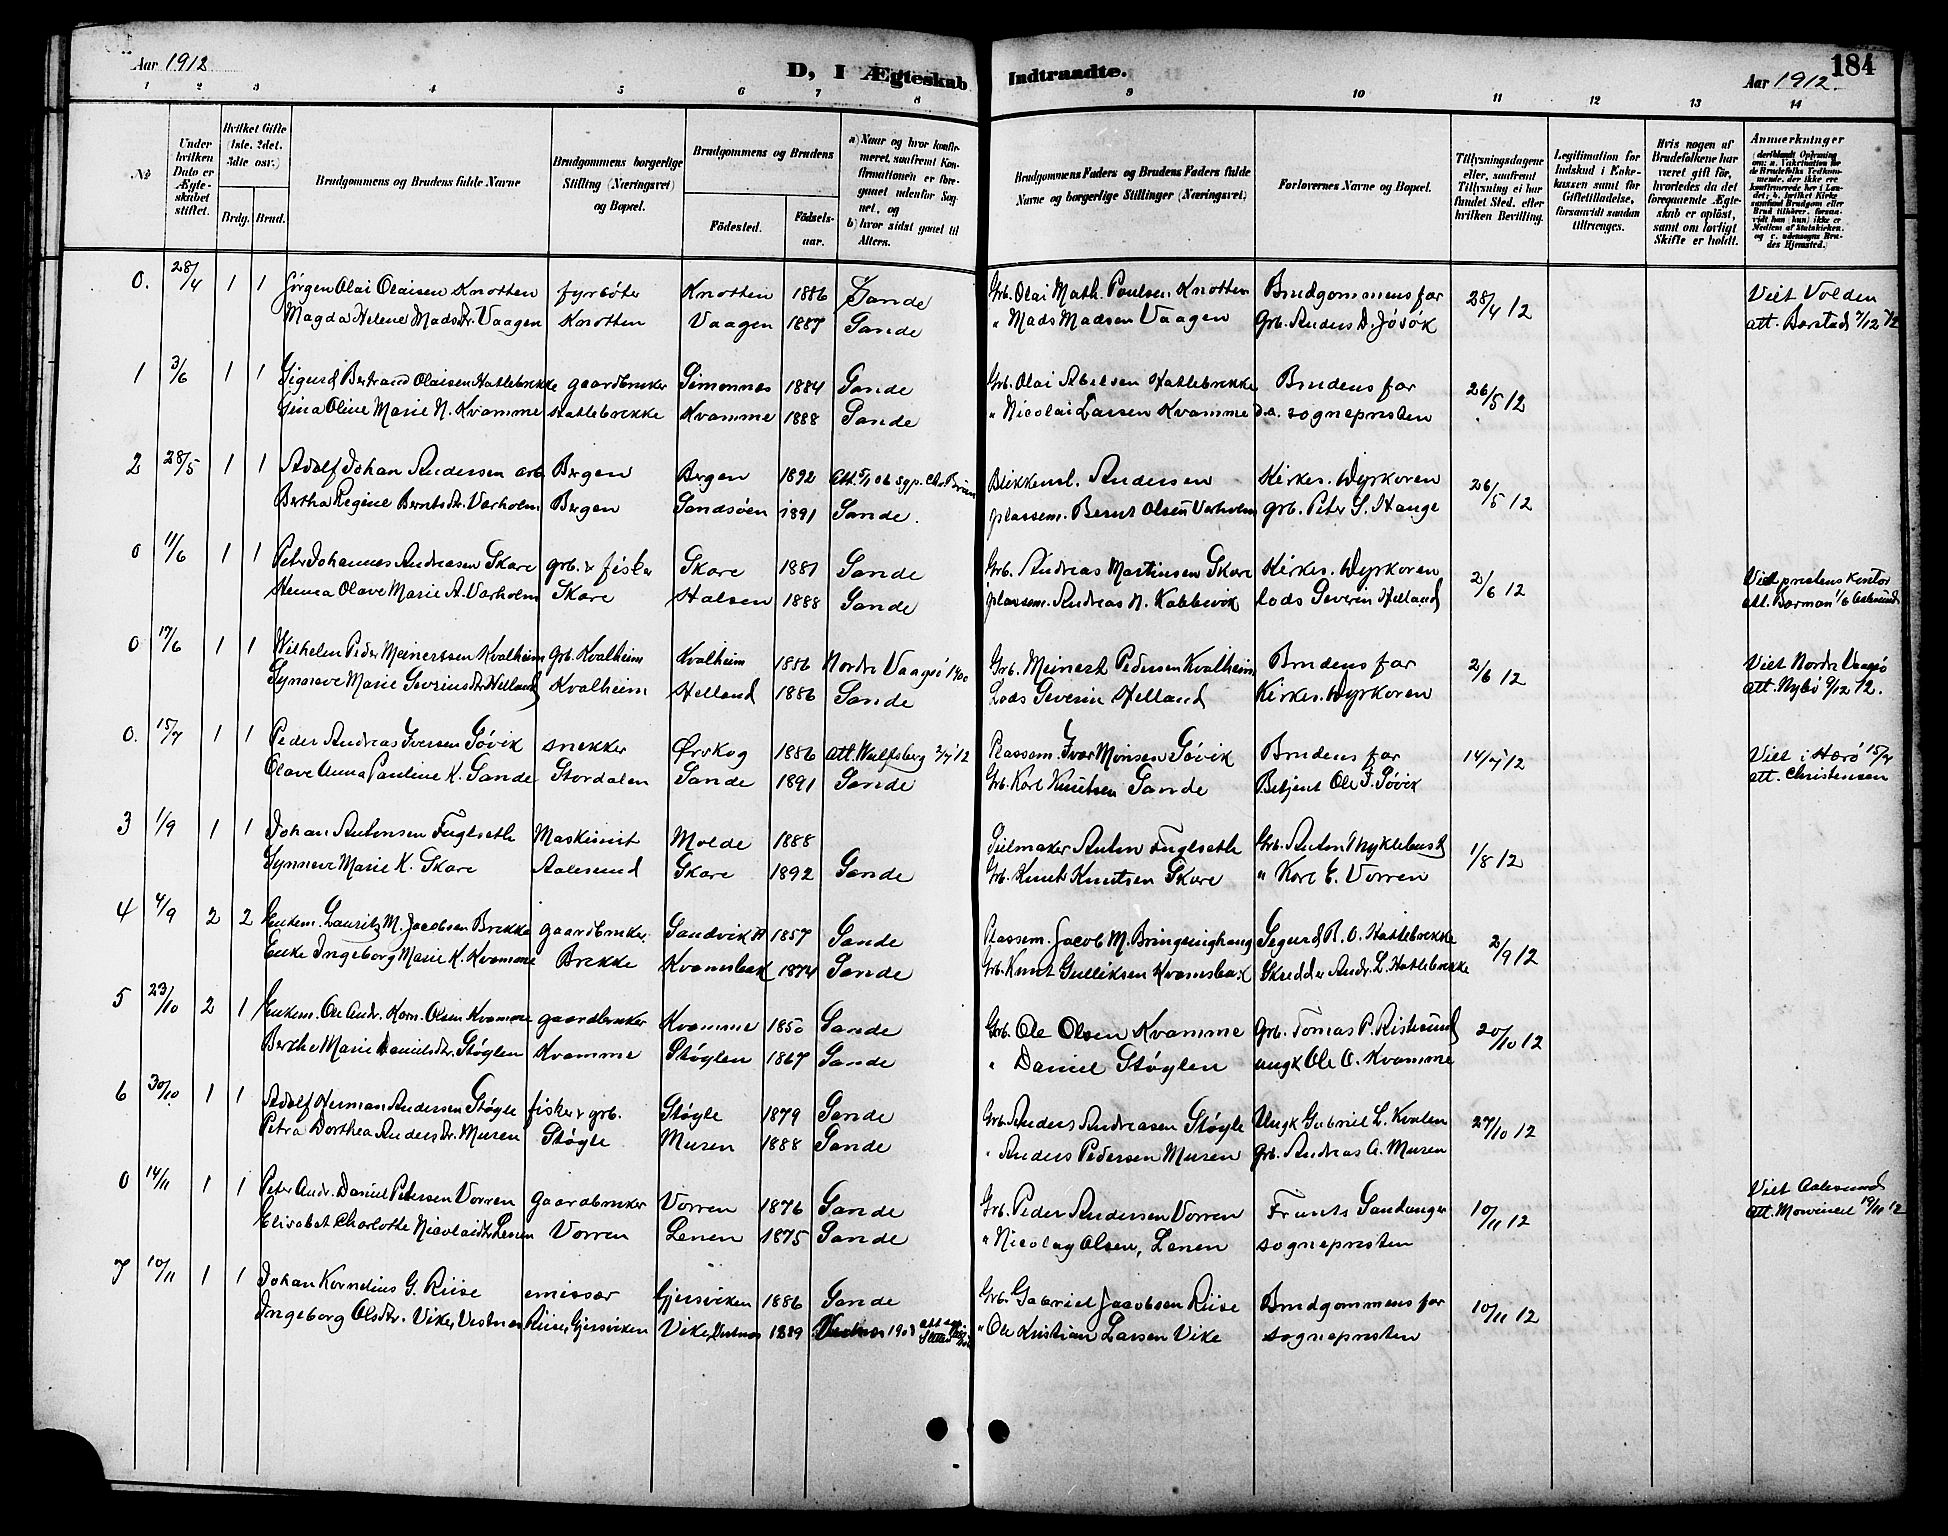 Aar 1912
D, I Ægteskab Indtraadte.
184
Aar 1912.
1 2 3 4 5 6 7 8 9 10 11 12 13 14
No
Under hvilken Dato er Ægteskabet stiftet.
Hvilket Gifte (1ste. 2det. 3die osv.)
Brdg. Brud.
Brudgommens og Brudens fulde Navne
Brudgommens borgerlige Stilling (Næringsvei) og Bopæl.
Brudgommens og Brudens
Födested. Födselsaar.
a) Naar og hvor konfirmeret, saafremt Konfirmationen er foregaaet udenfor Sognet, og
b) hvor sidst gaaet til Alters.
Brudgommens Faders og Brudens Faders fulde Navne og borgerlige Stillinger (Næringsvei)
Forlovernes Navne og Bopæl.
Tillysningsdagene eller, saafremt Tillysning ei har fundet Sted, efter hvilken Bevilling.
Legitimation for Indskud i Enkekassen samt for Giftetilladelse, forsaavidt saadan tiltrænges.
Hvis nogen af Brudefolkene har været gift för, hvorledes da det foregaaende Ægteskab er oplöst, samt om lovligt Skifte er holdt.
Anmerkninger
0. 28/4 1 1 Jörgen Olai Olaisen Knotten fyrböter Knotten 1886 Sande Grb. Olai Math. Poulsen Knotten Brudgommens far 28/4 12 Viet Volden
Magda Helene Madsdr. Vaagen Knotten Vaagen 1887 Sande " Mads Madsen Vaagen Grb. Anders D. Jøsök att. Barstad
1 3/6 1 1 Sigurd Bertrand Olaisen Hatlebrekke gaardbruker Simonnes 1884 Sande Grb. Olai Abelsen Hatlebrekke Brudens far 26/5 12
Gina Oline Marie N. Kvamme Hatlebrekke Kvamme 1888 Sande " Nicolai Larsen Kvamme d.a. sognepresten
2 28/5 1 1 Adolf Johan Andersen arb. Bergen Bergen 1892 Att. 5/1 06 sgp. Chr. Bruun Blikkensl. Andersen Kirkes. Dyrkoren 26/5 12
Bertha Regine Berntsdr. Varholm Bergen Sandsøen 1891 Sande. plassem. Bernt Olsen Varholm grb. Peter S. Hauge
0 11/6 1 1 Peter Johannes Andreasen Skare grb. & fisker Skare 1881 Sande Grb. Andreas Martinsen Skare Kirkes. Dyrkoren 2/6 12 Viet prestens kontor
Henna Olave Marie A. Varholm Skare Halsen 1888 Sande plassem. Andreas N. Kobbevik Lods Severin Helland att. Barman 11/6 Aalesund
0 17/6 1 1 Wilhelm Peder Meinertsen Kvalheim grb. Kvalheim Kvalheim 1886 Nordre Vaagsö 1900 Grb. Meinert Pedersen Kvalheim Brudens far 2/6 12 Viet Nordre Vaagsö
Synneve Marie Severinsdtr. Helland Kvalheim Helland 1886 Sande Lods Severin Helland Kirkes. Dyrkoren att. Nybö 9/12 12.
0. 15/7 1 1 Peder Andreas Iversen Søvik snekker Ørskog 1886 att. Wulfsberg 3/7 12 Plassem. Iver Monsen Søvik Brudens far 14/7 12 Viet i Herö 15/7
Olave Anna Pauline K. Sande Stordalen Sande 1891 Sande Grb. Karl Knutsen Sande Betjent Ole I. Søvik att. Christensen
3 1/9 1 1 Johan Antonsen Fuglseth Maskinist Molde 1888 Seilmaker Anton Fuglseth Grb. Anton Myklebust 1/8 12
Synneve Marie K. Skare Aalesund Skare 1892 Sande Grb. Knut Knutsen Skare " Karl E. Vorren
4 4/9 2 2 Enkem. Lauritz M. Jacobsen Brekke gaardbruker Sandvik H 1857 Sande Plassem. Jacob M. Bringsinghaug Segurd B. O. Hatlebrekke 2/9 12
Enke Ingeborg Marie K. Kvamme Brekke Kvamsbak 1874 Sande Grb. Knut Gulliksen Kvamsbak Skredder Andr. L. Hatlebrekke
5 23/10 2 1 Enkem. Ole Andr. Korn. Olsen Kvamme gaardbruker Kvamme 1850 Sande Grb. Ole Olsen Kvamme Grb. Tomas P. Ristesund 20/10 12
Berthe Marie Danielsdtr. Støylen Kvamme Støylen 1867 Sande " Daniel Støylen ungk Ole O. Kvamme
6 30/10 1 1 Adolf Herman Andersen Støyle fisker & grb. Støyle 1879 Sande Grb. Anders Andreasen Støyle Ungk Gabriel L. Kvalen 27/10 12
Petra Dorthea Andersdtr. Muren Støyle Muren 1888 Sande " Anders Pedersen Muren grb. Andreas A. Muren
0 14/11 1 1 Peter Andr. Daniel Petersen Vorren gaardbruker Vorren 1876 Sande Grb. Peder Andersen Vorren Frants Sandanger 10/11 12 Viet Aalesund
Elisabet Charlotte Nicolaidtr. Lenen Vorren Lenen 1875 Sande " Nicolay Olsen, Lenen sognepresten att. Mowinckel 19/11 12
7 10/11 1 1 Johan Kornelius G. Riise emissær Gjersviken 1886 Sande Grb. Gabriel Jacobsen Riise Brudgommens far 10/11 12
Ingeborg Olsdtr. Vike, Vestnes Riise, Gjersviken Vike, Vestnes 1889 Vestnes 1903 " Ole Kristian Larsen Vike sognepresten